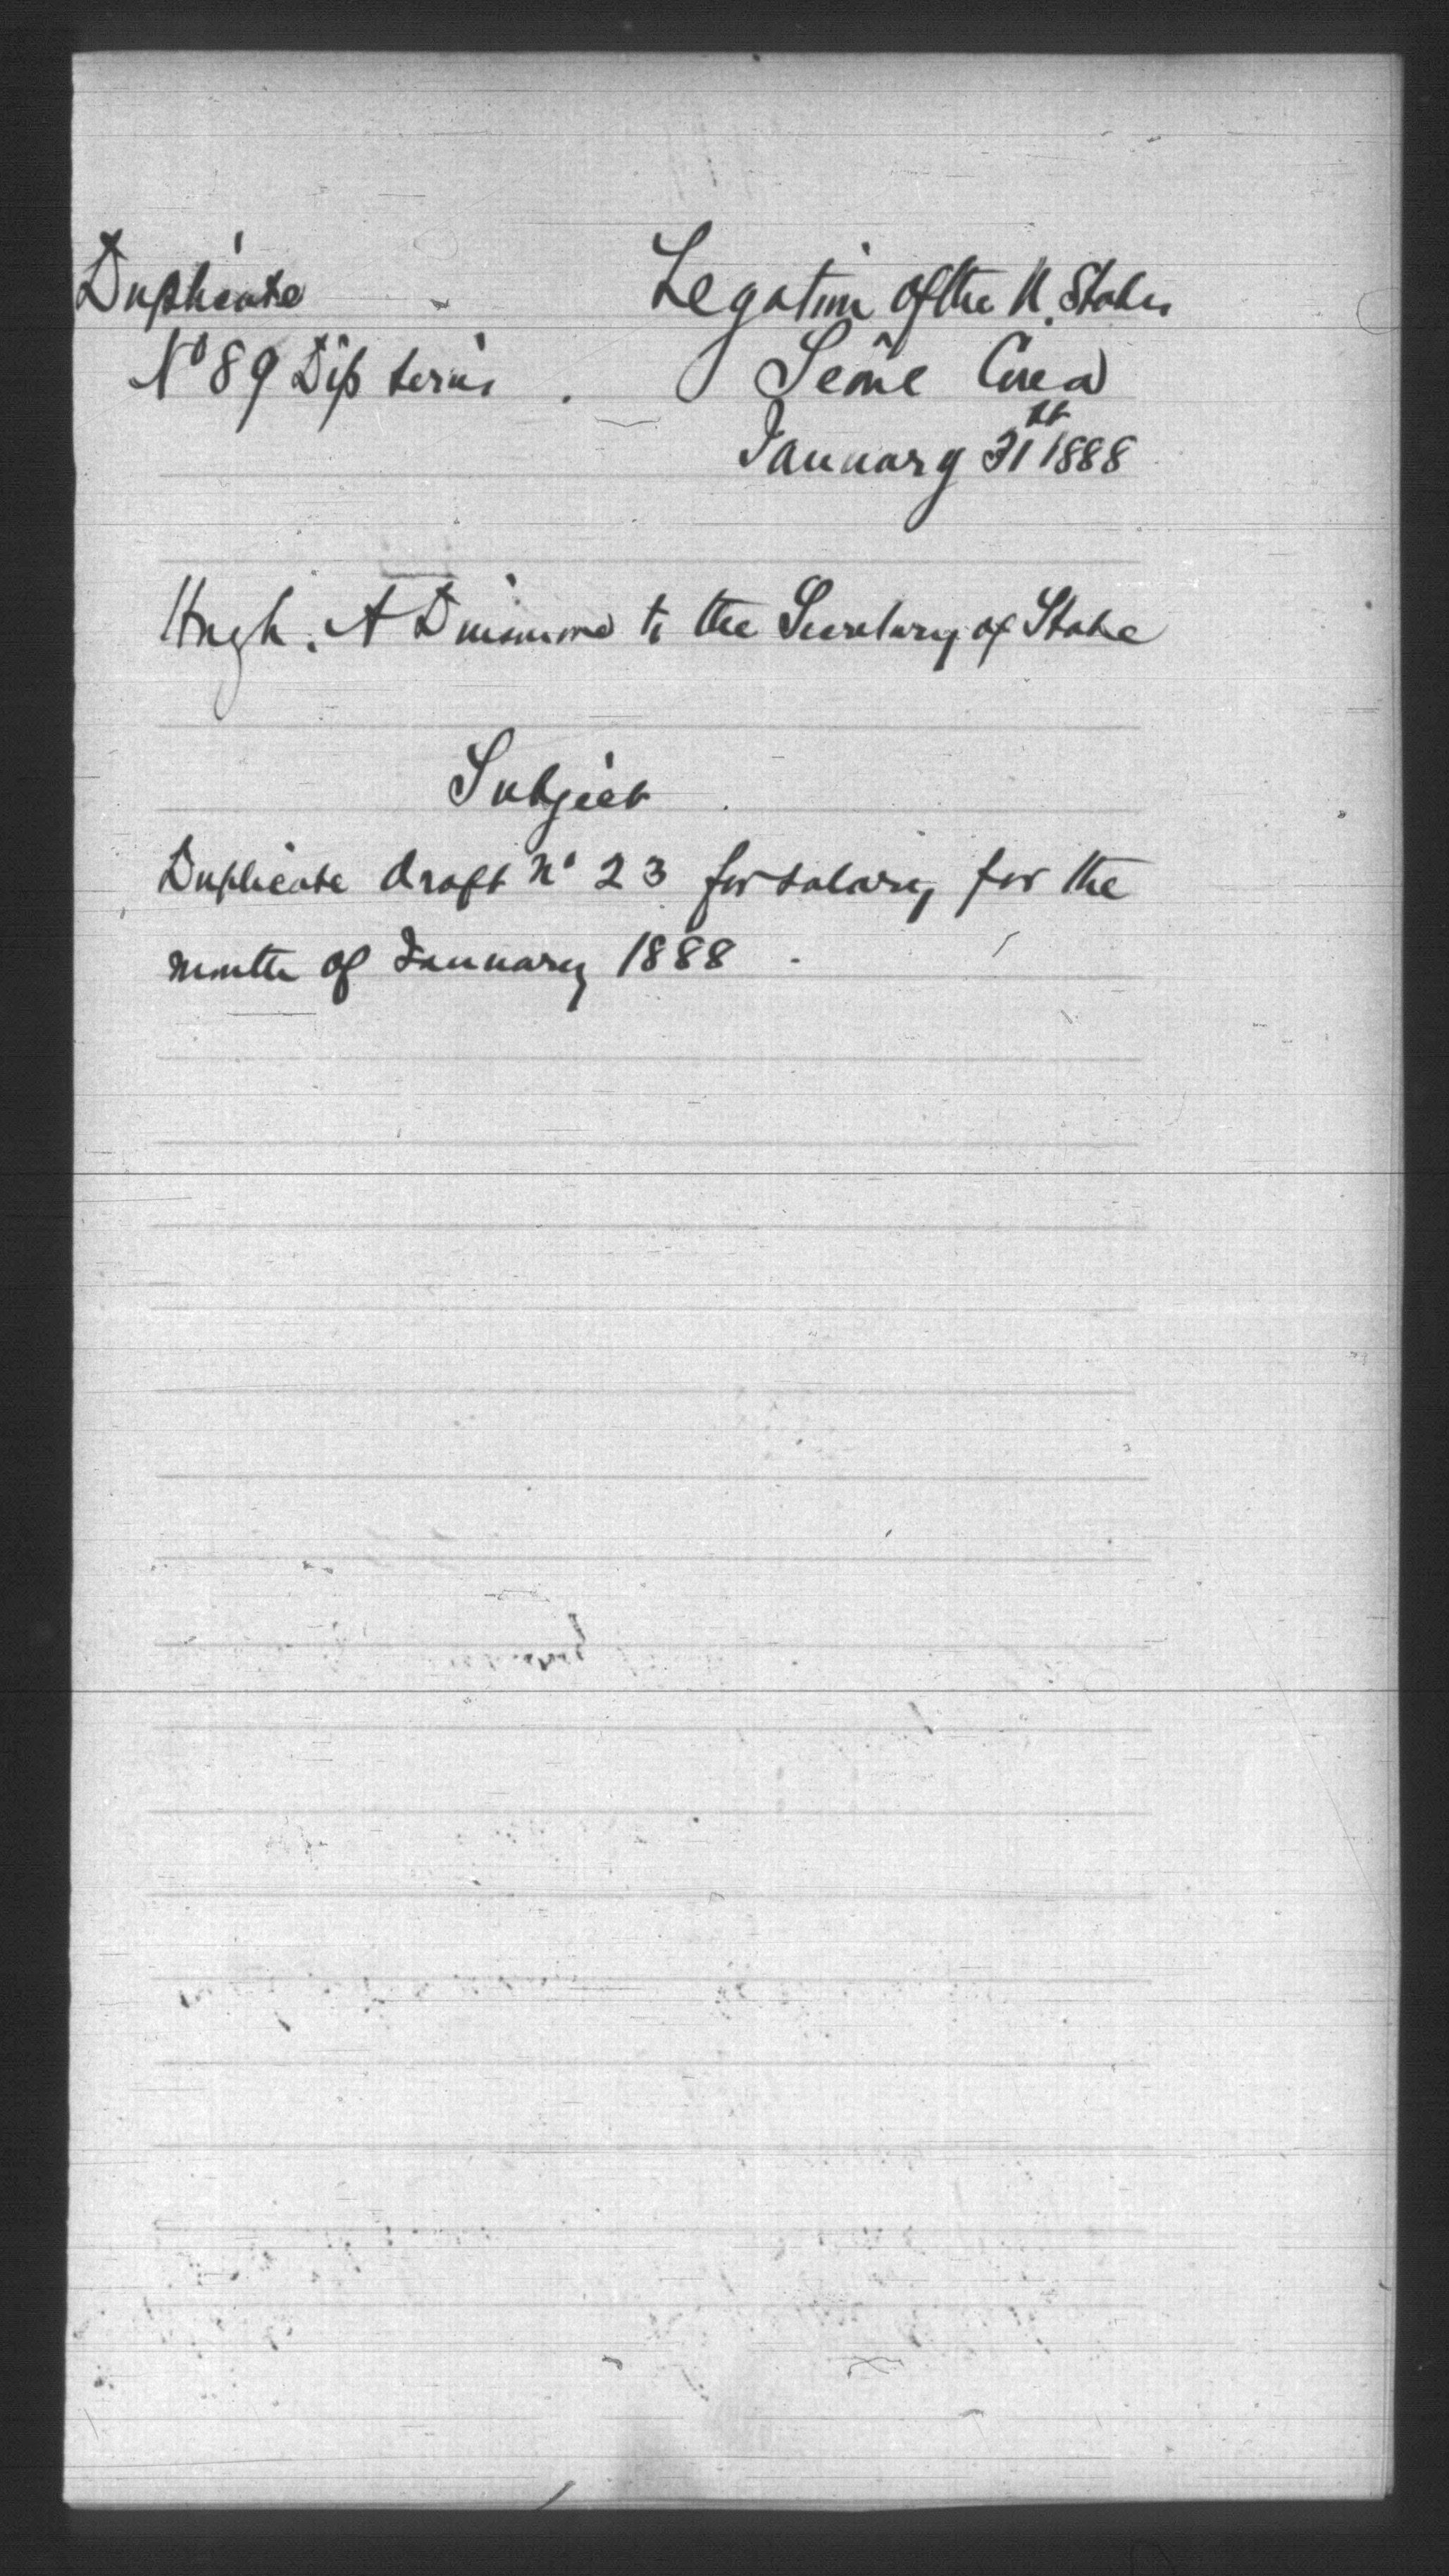 Duplicate
Legation of the U. States
No 89 Dip series.
Séoul Corea
January 31st 1888
Hugh. A Dinsmore to the Secretary of State
Subject
Duplicate draft No 23 for salary for the
month of January 1888.